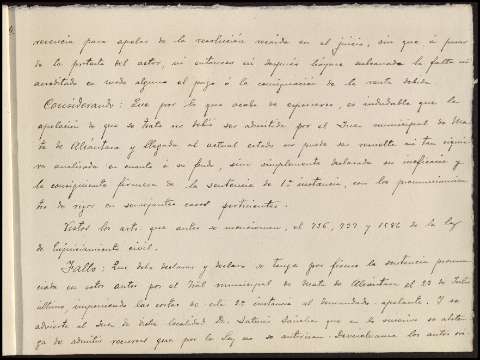 recurrencia para apelar de la resolución recaida en el juicio, sin que á pesar
de la protesta del actor, ni entonces ni despues hayase subsanado la falta ni
acreditado en modo alguno el pago ó la consignación de la renta debida
Considerando: Que por lo que acaba de exponerse, es indudable que la
apelación de que se trata no debió ser admitida por el Juez municipal de Mata
de Alcántara y llegada al actual estado no puede se resuelta ni tan siquie
ra analizada en cuanto á su fondo, sino simplemente declarada su ineficacia y
la consiguiente firmeza de la sentencia de 1ª instancia, con los pronunciamien
tos de rigor en semejantes casos pertinentes.
Vistos los arts. que antes se mencionan, el 736, 737 y 1582 de la ley
de Enjuiciamiento civil.
Fallo: Que debo declarar y declaro se tenga por firme la sentencia pronun
ciada en estos autos por el Tribal municipal de Mata de Alcántara el 23 de Julio
último, imponiendo las costas de esta 2ª instancia al demandado apelante. Y se
advierte al Juez de dicha localidad Dn. que en lo sucesivo se absten
ga de admitir recursos que por la ley no se autorizan. Devuélvanse los autos ori